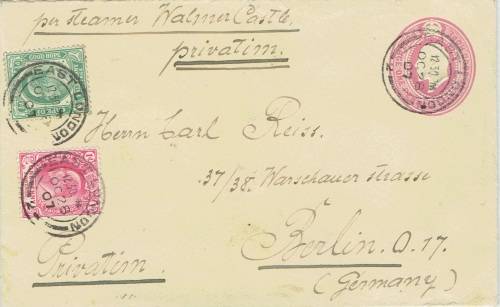 per steamer Walmer Castle,
privatim.
EAST LONDON
EAST LONDON
OC 2
07
Herrn Carl Reiss.
37/38. Warschauer strasse
Berlin. O. 17.
(Germany)
Privatim.